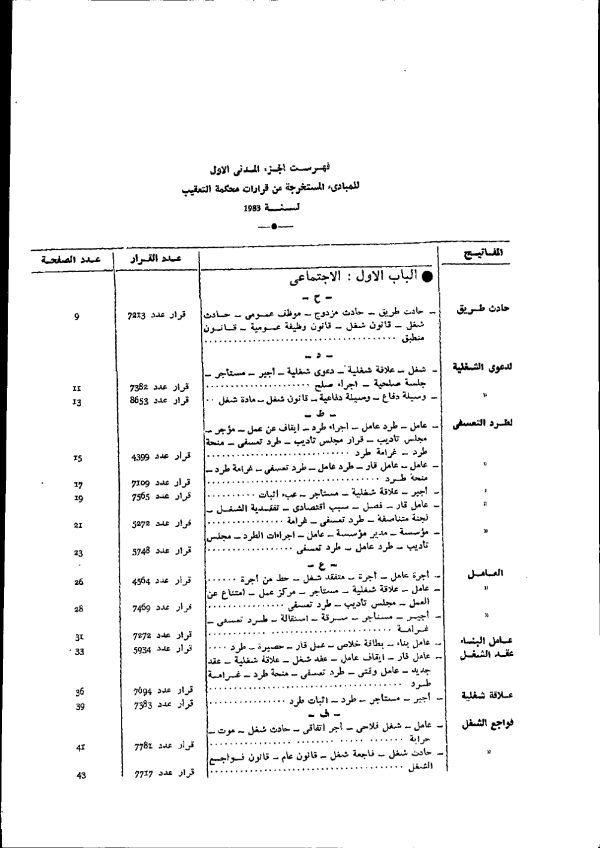 فهرست الجزء المدني الاول
للمبادىء المستخرجة من قرارات محكمة التعقيب
لسنة 1983
المفاتيح عدد القرار عدد الصفحة
● الباب الاول : الاجتماعي
- ح -
حادث طريق - حادث طريق - حادث مزدوج - موظف عمومي - حادث
شغل - قانون شغل - قانون وظيفة عمومية - قانون
منطبق قرار عدد 7213 9
- د -
لدعوى الشغلية - شغل - علاقة شغلية - دعوى شغلية - أجير - مستأجر -
جلسة صلحية - اجراء صلح قرار عدد 7382 11
" - وسيلة دفاع - وسيلة دفاعية - قانون شغل - مادة شغل قرار عدد 8653 13
- ط -
لطرد التعسفى - عامل - طرد عامل - اجراء طرد - ايقاف عن عمل - مؤجر -
مجلس تأديب - قرار مجلس تأديب - طرد تعسفى - منحة
طرد - غرامة طرد قرار عدد 4399 15
" - عامل - عامل قار - طرد عامل - طرد تعسفى - غرامة طرد -
منحة طرد قرار عدد 7109 17
" - أجير - علاقة شغلية - مستأجر - عبء اثبات قرار عدد 7565 19
" - عامل قار - فصل - سبب اقتصادى - تفقدية الشغل -
لجنة متناصفة - طرد تعسفى - غرامة قرار عدد 5272 21
" - مؤسسة - مدير مؤسسة - عامل - اجراءات الطرد - مجلس
تأديب - طرد عامل - طرد تعسفى قرار عدد 5748 23
- ع -
العامل - أجرة عامل - أجرة - متفقد شغل - حط من أجرة قرار عدد 4564 26
" - عامل - علاقة شغلية - مستأجر - مركز عمل - امتناع عن
العمل - مجلس تأديب - طرد تعسفى قرار عدد 7469 28
" - أجير - مستأجر - سرقة - استقالة - طرد تعسفى -
غرامة قرار عدد 7272 31
عامل البناء - عامل بناء - بطاقة خلاص - عمل قار - حصيرة - طرد قرار عدد 5934 33
عقد الشغل - عامل قار - ايقاف عامل - عقد شغل - علاقة شغلية - عقد
جديد - عامل وقتى - طرد تعسفى - منحة طرد - غرامة
طرد قرار عدد 7694 36
علاقة شغلية - أجير - مستأجر - طرد - اثبات طرد قرار عدد 7383 39
- ف -
فواجع الشغل - عامل - شغل فلاحي - أجر اتفاقى - حادث شغل - موت -
جراية قرار عدد 7781 41
" - حادث شغل - فاجعة شغل - قانون عام - قانون فواجع
الشغل قرار عدد 7717 43